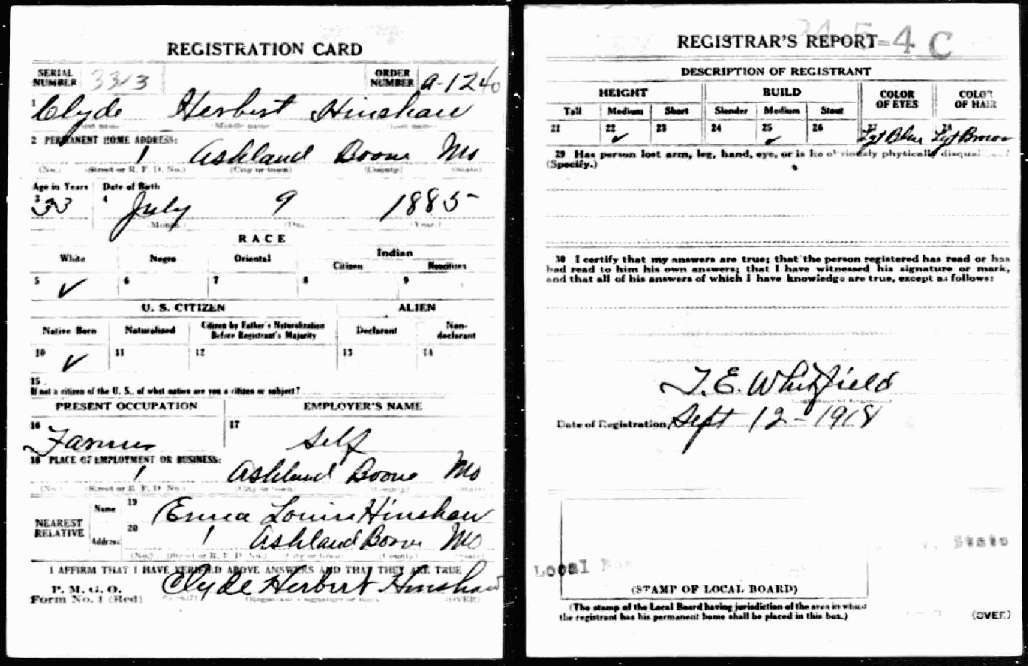 REGISTRATION CARD
SERIAL NUMBER 3313 ORDER NUMBER A-1240
1 Clyde Herbert Hinshaw
(First name) (Middle name) (Last name)
2 PERMANENT HOME ADDRESS:
1 Ashland Boone Mo
(No.) (Street or R. F. D. No.) (City or town) (County) (State)
Age in Years Date of Birth
3 33 4 July 9 1885
(Month.) (Day.) (Year.)
RACE
White Negro Oriental Indian
Citizen Noncitizen
5 ✓ 6 7 8 9
U. S. CITIZEN ALIEN
Native Born Naturalized Citizen by Father's Naturalization Before Registrant's Majority Declarant Non-declarant
10 ✓ 11 12 13 14
15
If not a citizen of the U. S., of what nation are you a citizen or subject?
PRESENT OCCUPATION EMPLOYER'S NAME
16 Farmer 17 Self
18 PLACE OF EMPLOYMENT OR BUSINESS:
1 Ashland Boone Mo
(No.) (Street or R. F. D. No.) (City or town) (County) (State)
NEAREST RELATIVE Name 19 Emma Louise Hinshaw
Address 20 1 Ashland Boone Mo
(No.) (Street or R. F. D. No.) (City or town) (County) (State)
I AFFIRM THAT I HAVE VERIFIED ABOVE ANSWERS AND THAT THEY ARE TRUE
P. M. G. O.
Form No. 1 (Red) Clyde Herbert Hinshaw
(Registrant's signature or mark) (OVER)
REGISTRAR'S REPORT 24-5-4 C
DESCRIPTION OF REGISTRANT
HEIGHT BUILD COLOR OF EYES COLOR OF HAIR
Tall Medium Short Slender Medium Stout
21 22 ✓ 23 24 25 ✓ 26 27 Lgt Blue 28 Lgt Brown
29 Has person lost arm, leg, hand, eye, or is he obviously physically disqualified?
(Specify.)
30 I certify that my answers are true; that the person registered has read or has
had read to him his own answers; that I have witnessed his signature or mark,
and that all of his answers of which I have knowledge are true, except as follows:
T. E. Whitfield
Date of Registration Sept 12 - 1918
Local State
(STAMP OF LOCAL BOARD)
(The stamp of the Local Board having jurisdiction of the area in which
the registrant has his permanent home shall be placed in this box.)
(OVER)